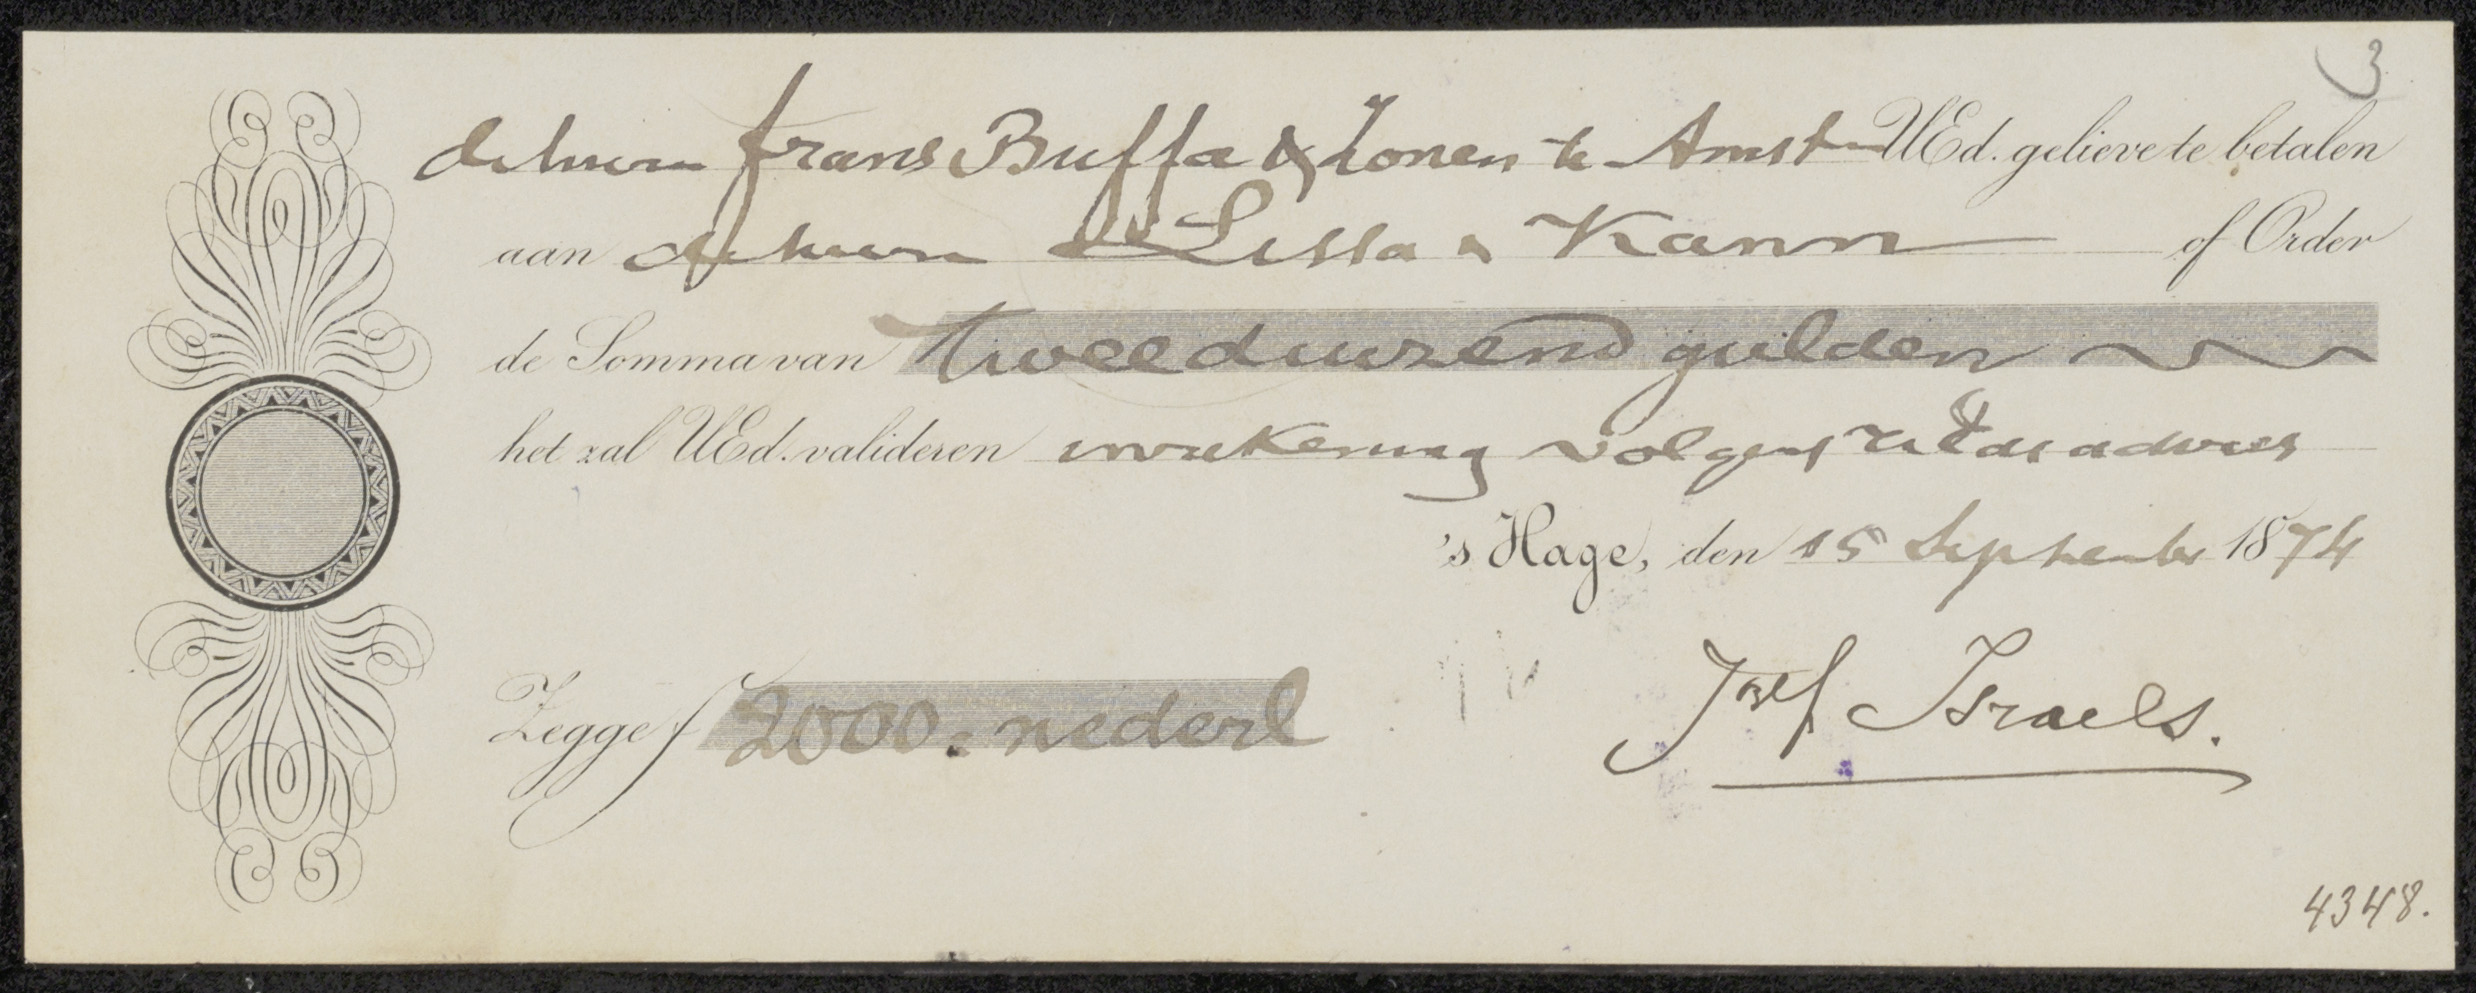 3
de heeren Frans Buffa & Zonen te Amstm UEd. gelieve te betalen
aan de heeren Lissa & Kann of Order
de Somma van tweeduizend gulden
het zal UEd. valideren in rekening volgens advies
's Hage, den 15 September 1874
Zegge f 2000. nederl
Jozef Israels.
4348.